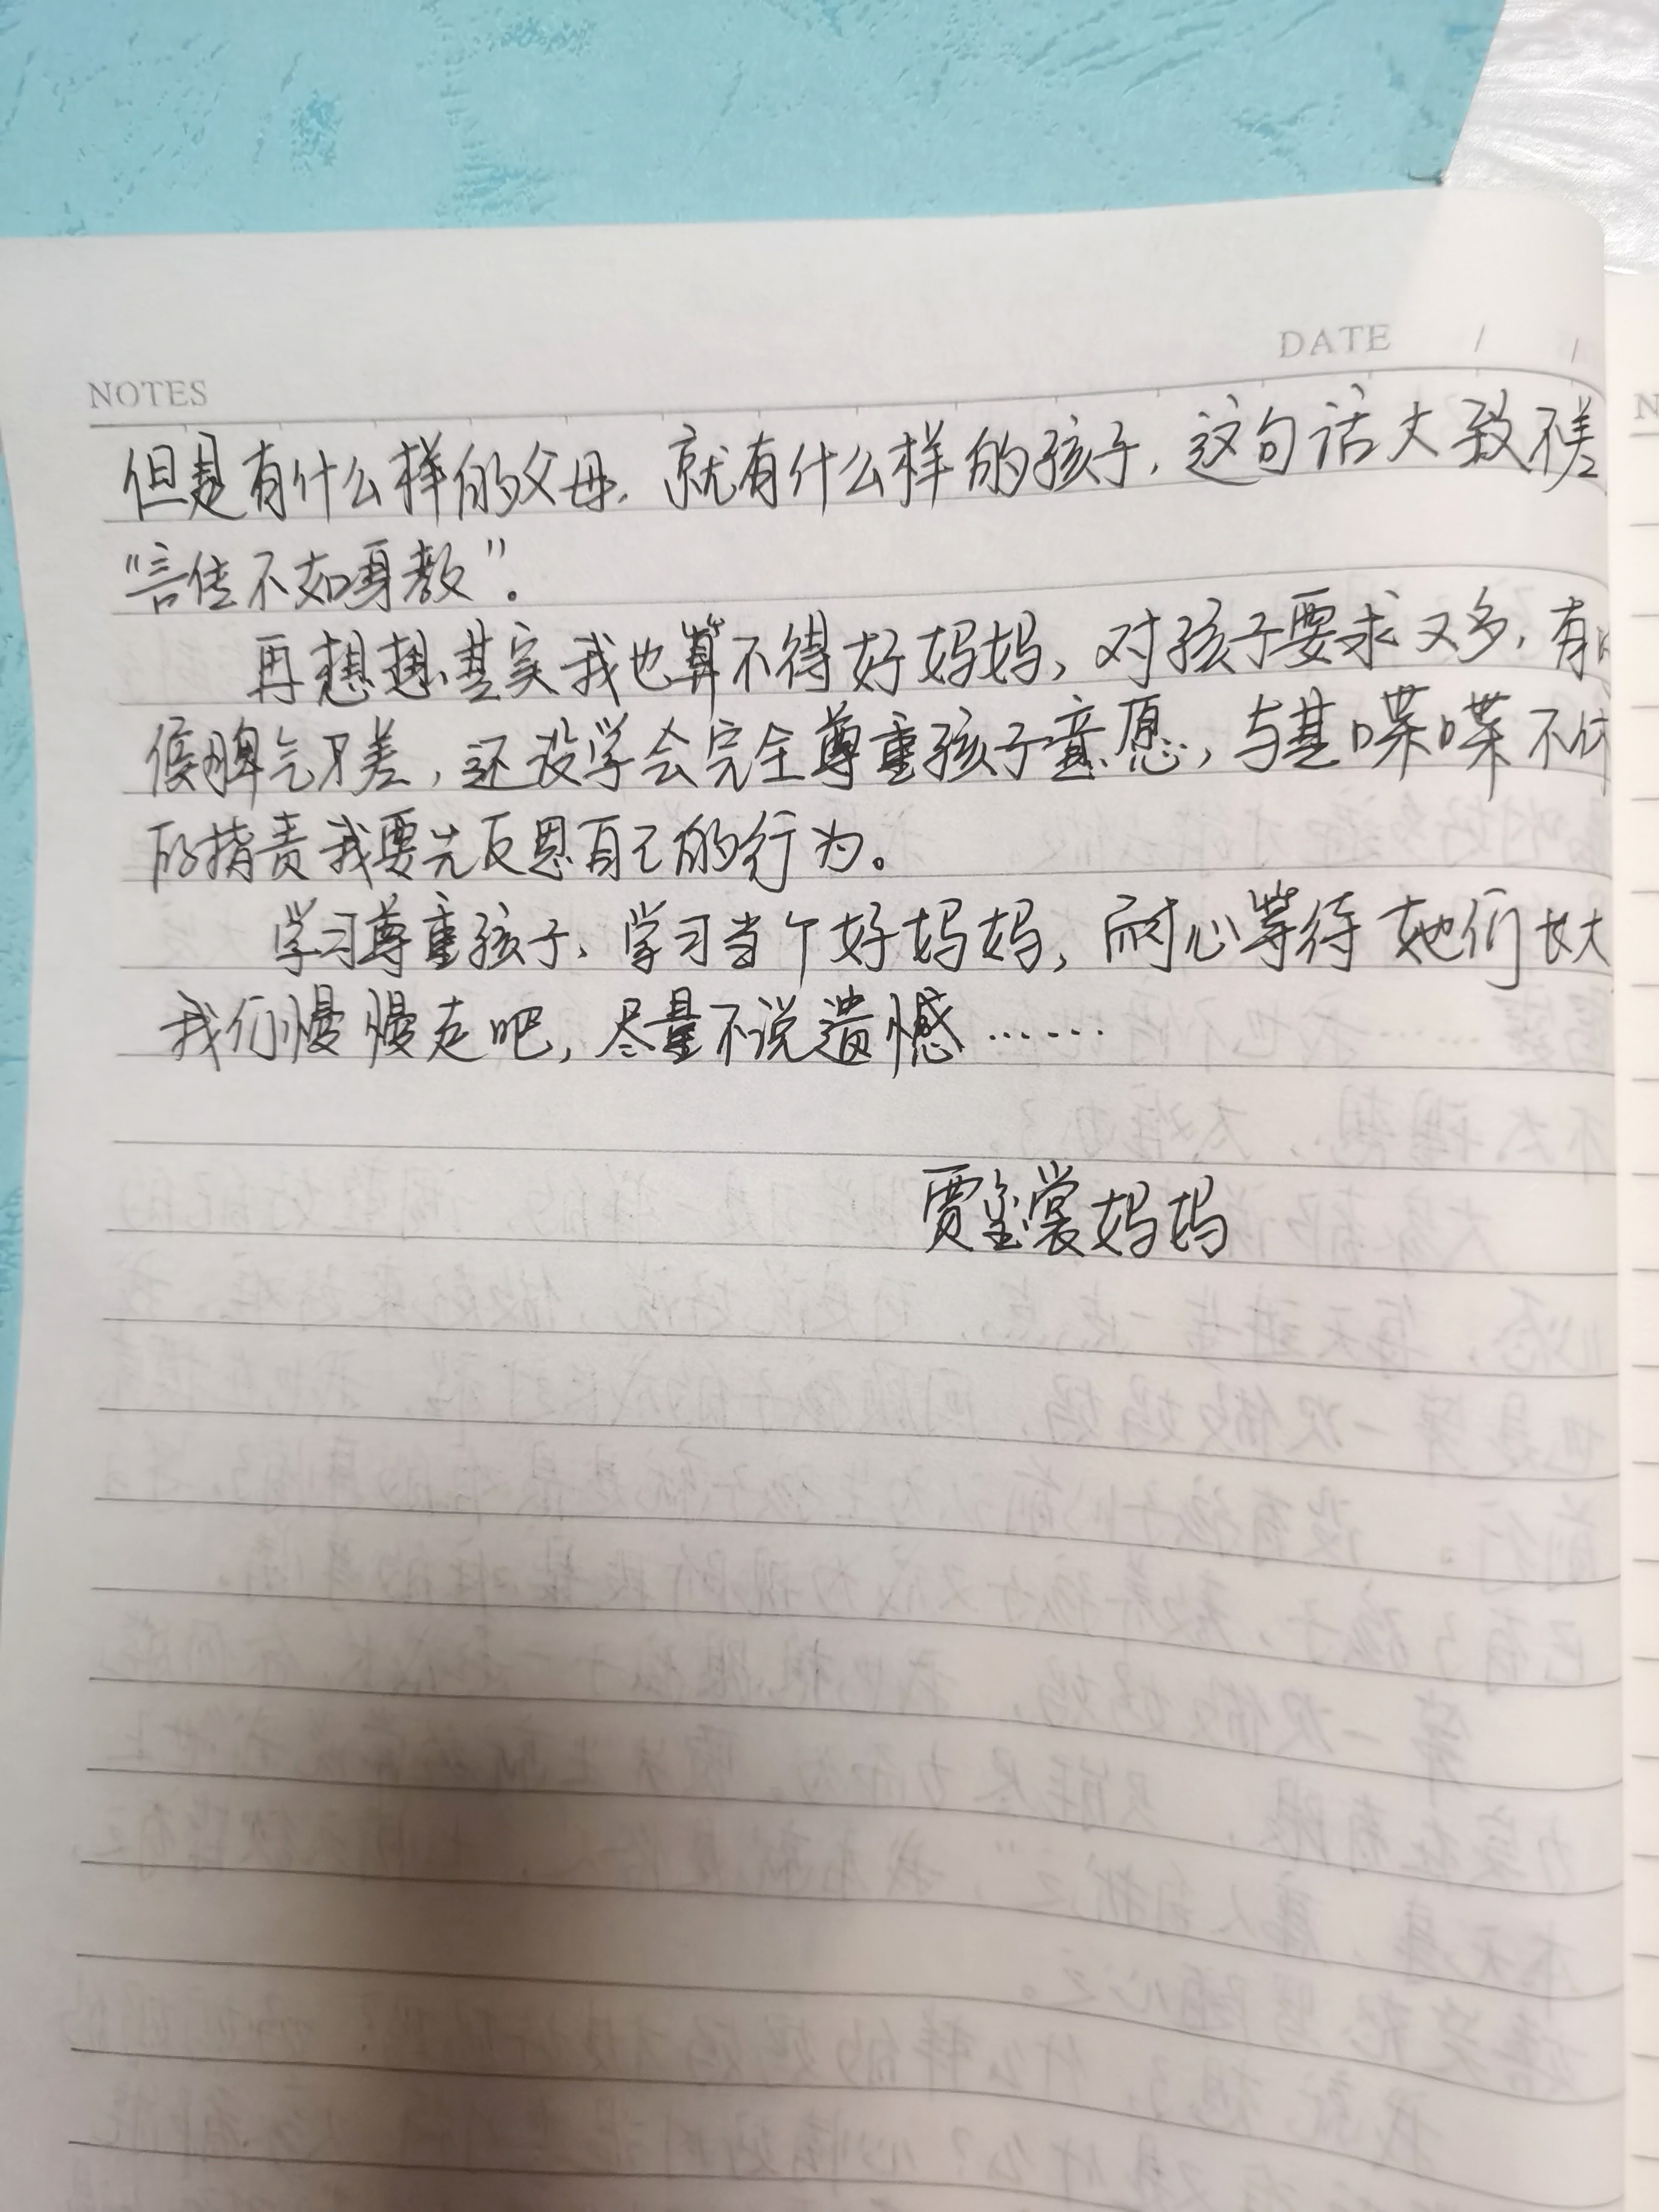 NOTES
DATE / /
但是有什么样的父母,就有什么样的孩子,这句话大致不差
“言传不如身教”.
再想想其实我也算不得好妈妈,对孩子要求又多,有
候脾气又差,还没学会完全尊重孩子意愿,与其喋喋不休
的指责我要先反思自己的行为。
学习尊重孩子、学习当个好妈妈,耐心等待她们长大
我们慢慢走吧,尽量不说遗憾……
贾 裳妈妈